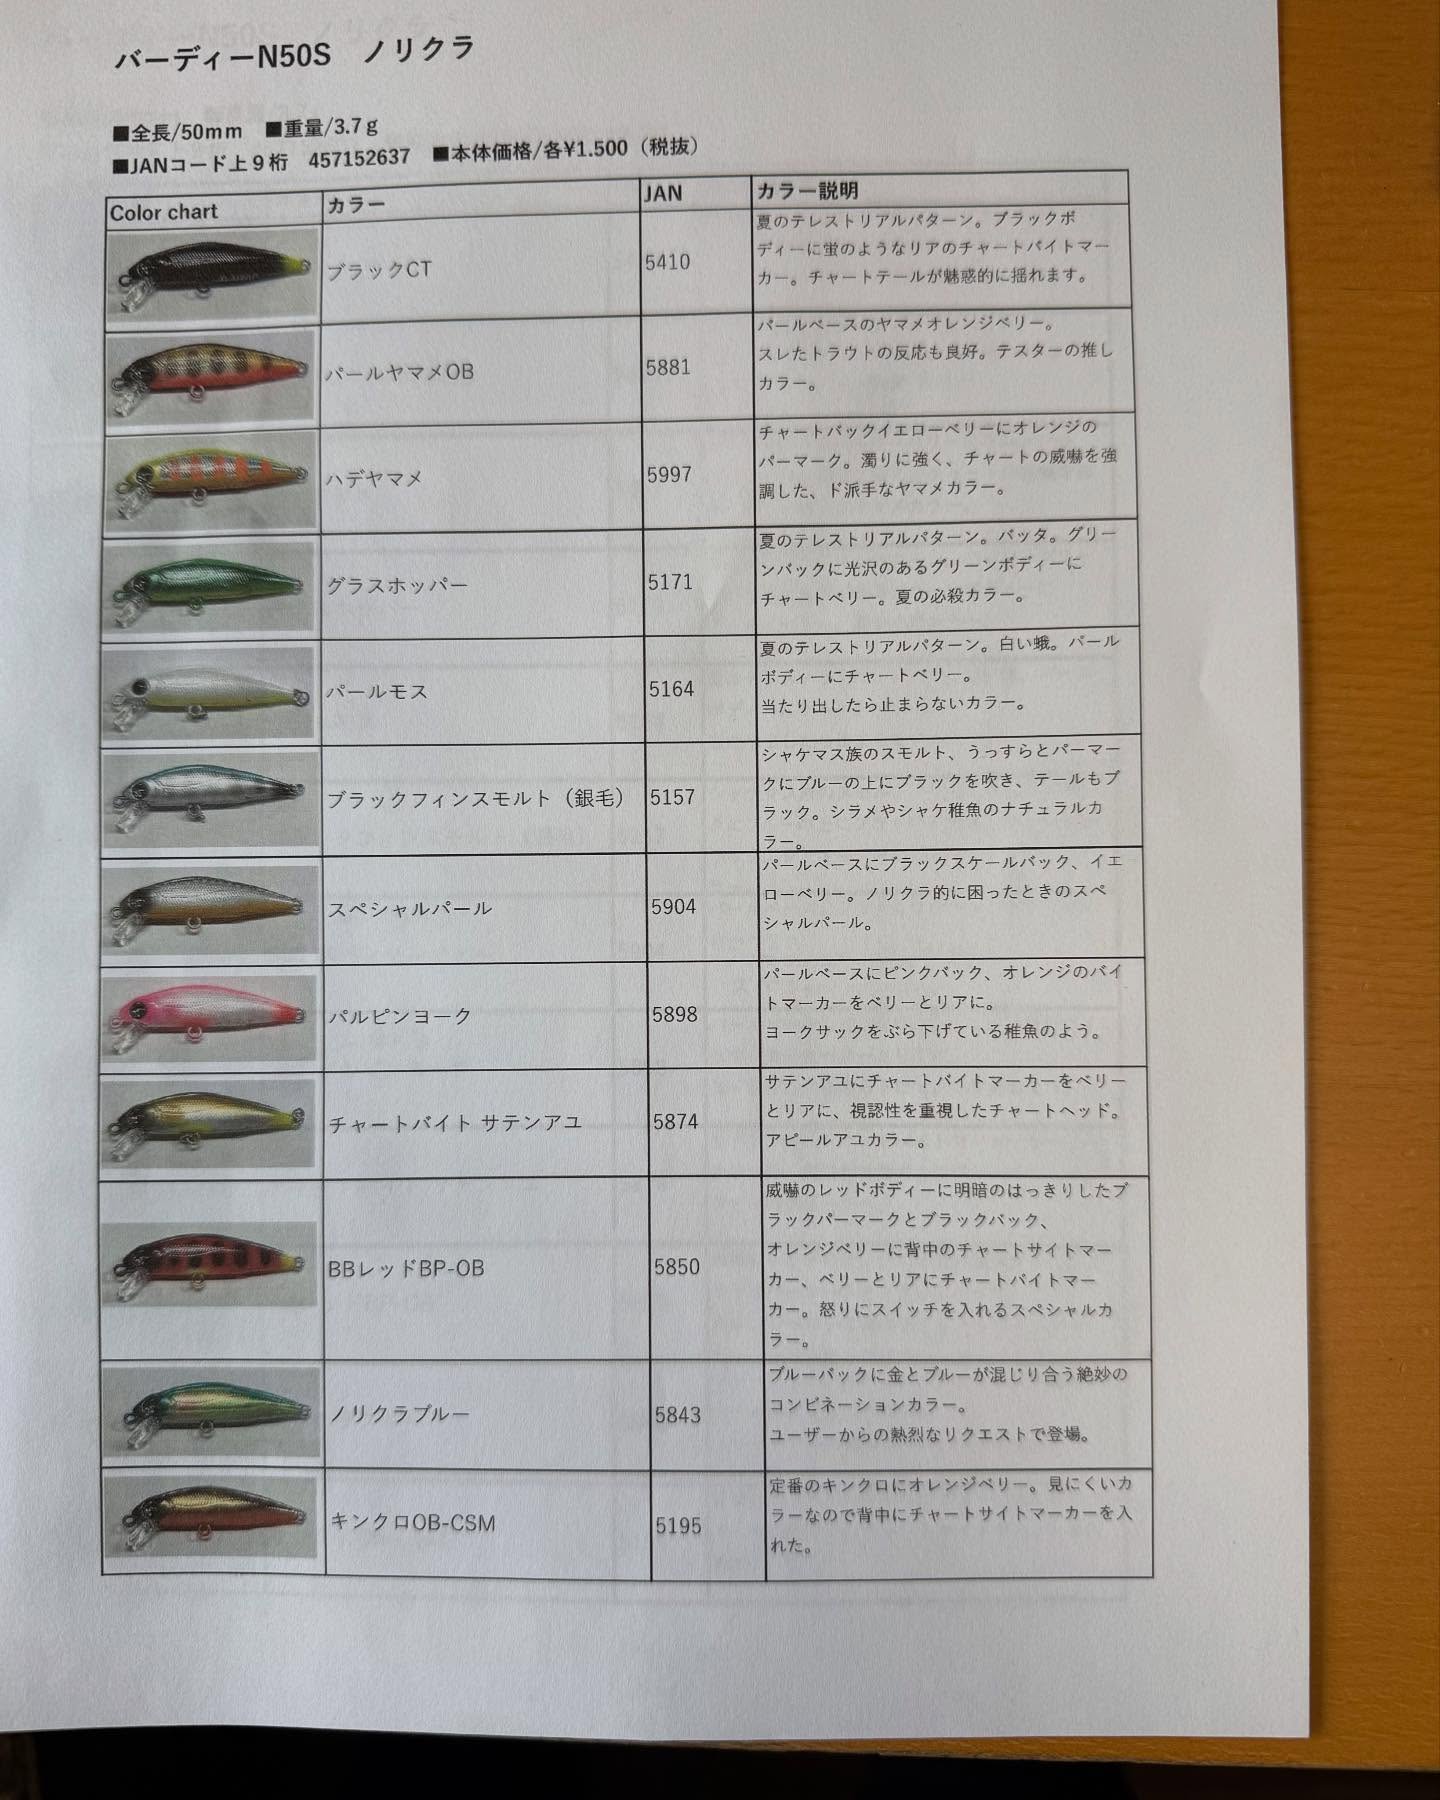 バーディーN50S　ノリクラ
■全長/50mm　■重量/3.7ｇ
■JANコード上９桁　457152637　■本体価格/各¥1.500（税抜）
Color chart　カラー　JAN　カラー説明
ブラックCT　5410
夏のテレストリアルパターン。ブラックボ
ディーに蛍のようなリアのチャートバイトマー
カー。チャートテールが魅惑的に揺れます。
パールヤマメOB　5881
パールベースのヤマメオレンジベリー。
スレたトラウトの反応も良好。テスターの推し
カラー。
ハデヤマメ　5997
チャートバックイエローベリーにオレンジの
パーマーク。濁りに強く、チャートの威嚇を強
調した、ド派手なヤマメカラー。
グラスホッパー　5171
夏のテレストリアルパターン。バッタ。グリー
ンバックに光沢のあるグリーンボディーに
チャートベリー。夏の必殺カラー。
パールモス　5164
夏のテレストリアルパターン。白い蛾。パール
ボディーにチャートベリー。
当たり出したら止まらないカラー。
ブラックフィンスモルト（銀毛）　5157
シャケマス族のスモルト、うっすらとパーマー
クにブルーの上にブラックを吹き、テールもブ
ラック。シラメやシャケ稚魚のナチュラルカ
ラー。
スペシャルパール　5904
パールベースにブラックスケールバック、イエ
ローベリー。ノリクラ的に困ったときのスペ
シャルパール。
パルピンヨーク　5898
パールベースにピンクバック、オレンジのバイ
トマーカーをベリーとリアに。
ヨークサックをぶら下げている稚魚のよう。
チャートバイト サテンアユ　5874
サテンアユにチャートバイトマーカーをベリー
とリアに、視認性を重視したチャートヘッド。
アピールアユカラー。
BBレッドBP-OB　5850
威嚇のレッドボディーに明暗のはっきりしたブ
ラックパーマークとブラックバック、
オレンジベリーに背中のチャートサイトマー
カー、ベリーとリアにチャートバイトマー
カー。怒りにスイッチを入れるスペシャルカ
ラー。
ノリクラブルー　5843
ブルーバックに金とブルーが混じり合う絶妙の
コンビネーションカラー。
ユーザーからの熱烈なリクエストで登場。
キンクロOB-CSM　5195
定番のキンクロにオレンジベリー。見にくいカ
ラーなので背中にチャートサイトマーカーを入
れた。